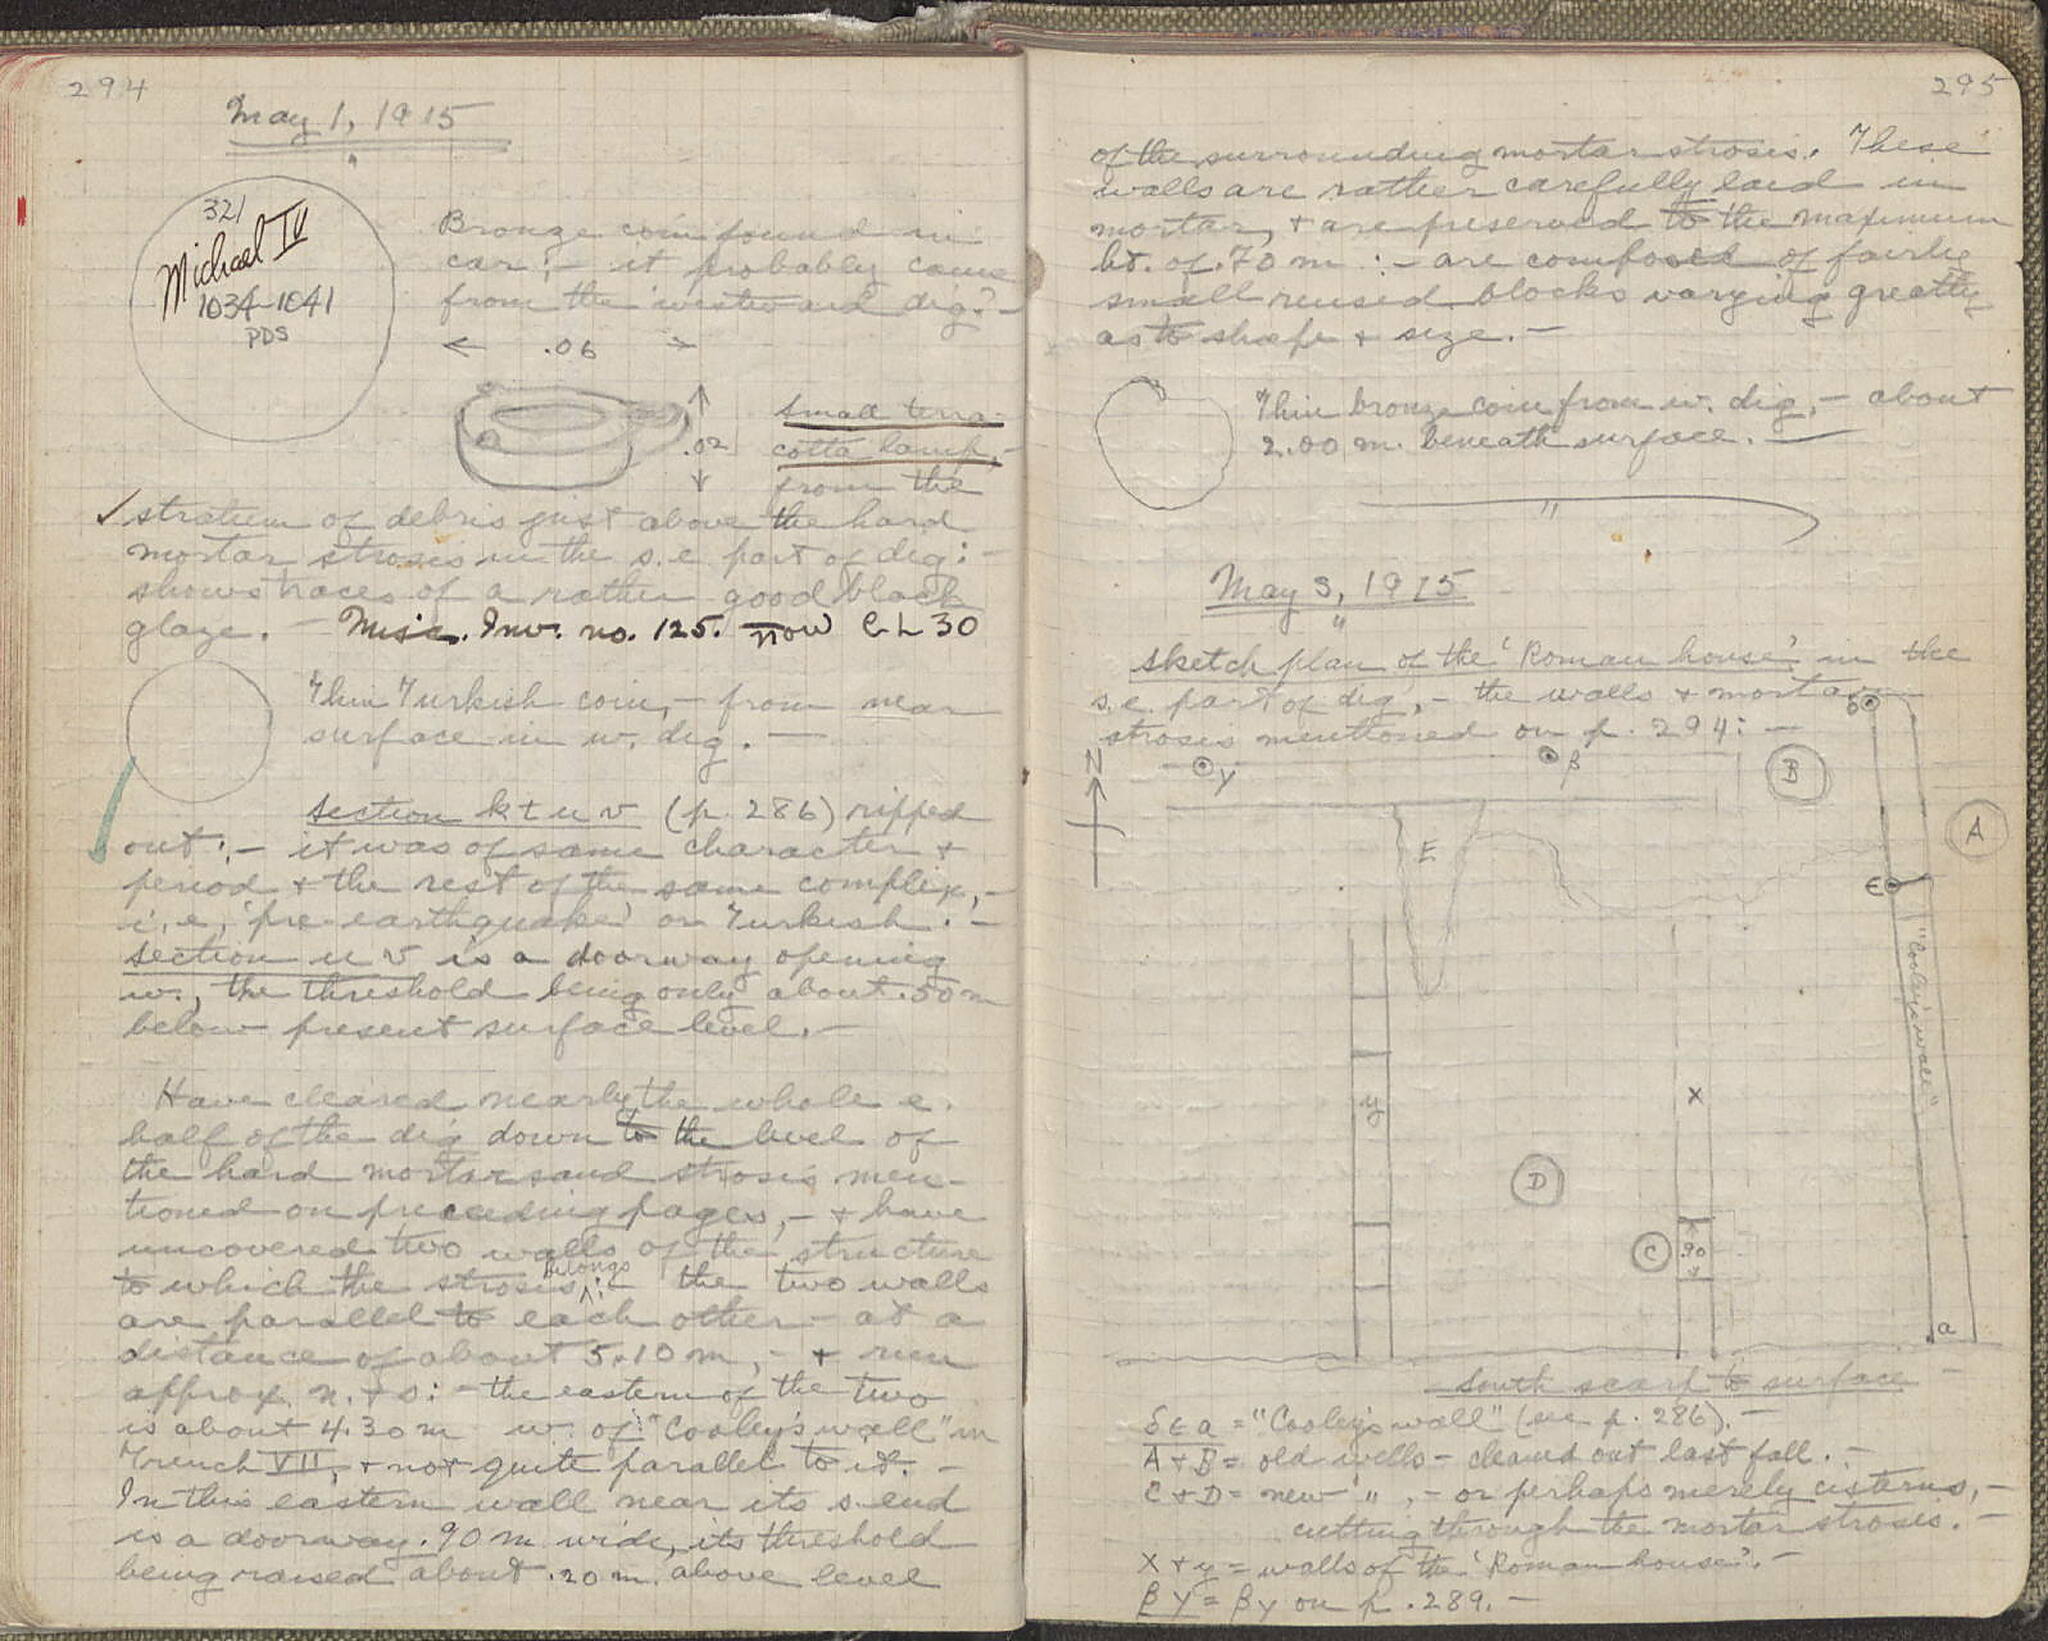 294
May 1, 1915
321
Michael IV
1034-1041
PDS
Bronze coin found in
car:- it probably came
from the westward dig?-
← .06 →
.02
small terra-
cotta lamp,-
from the
✓ stratum of debris just above the hard
mortar strosis in the s.e. part of dig:-
shows traces of a rather good black
glaze. - Misc. Inv. no. 125. now CL 30
Thin Turkish coin,- from near
surface in w. dig. —
Section k t u v (p. 286) ripped
out:- it was of same character +
period + the rest of the same complex,-
i.e, 'pre-earthquake' or Turkish. -
Section u v is a doorway opening
w., the threshold being only about .50 m
below present surface level. -
Have cleared nearly the whole e.
half of the dig down to the level of
the hard mortar sand strosis men-
tioned on preceding pages,- + have
uncovered two walls of the structure
to which the strosis belongs:- the two walls
are parallel to each other at a
distance of about 5.10 m,- + run
approx. n. + s:- the eastern of the two
is about 4.30 m w. of "Cooley's wall" in
Trench VII, + not quite parallel to it. -
In this eastern wall near its s. end
is a doorway .90 m. wide, its threshold
being raised about .20 m. above level
295
of the surrounding mortar strosis. These
walls are rather carefully laid in
mortar, + are preserved to the maximum
ht. of .70 m :- are composed of fairly
small reused blocks varying greatly
as to shape + size. -
Thin bronze coin from w. dig,- about
2.00 m. beneath surface. —
"
May 3, 1915
"
Sketch plan of the 'Roman house' in the
s.e. part of dig,- the walls + mortar
strosis mentioned on p. 294:-
δ
N
γ
β
B
A
E
ε
"Cooley's wall"
y
X
D
C
.90
a
South scarp to surface
δ ε a = "Cooley's wall" (see p. 286). -
A + B = old wells - cleaned out last fall. -
C + D = new " ,- or perhaps merely cisterns,-
cutting through the mortar strosis. -
X + y = walls of the 'Roman house'. -
β γ = β γ on p. 289. -